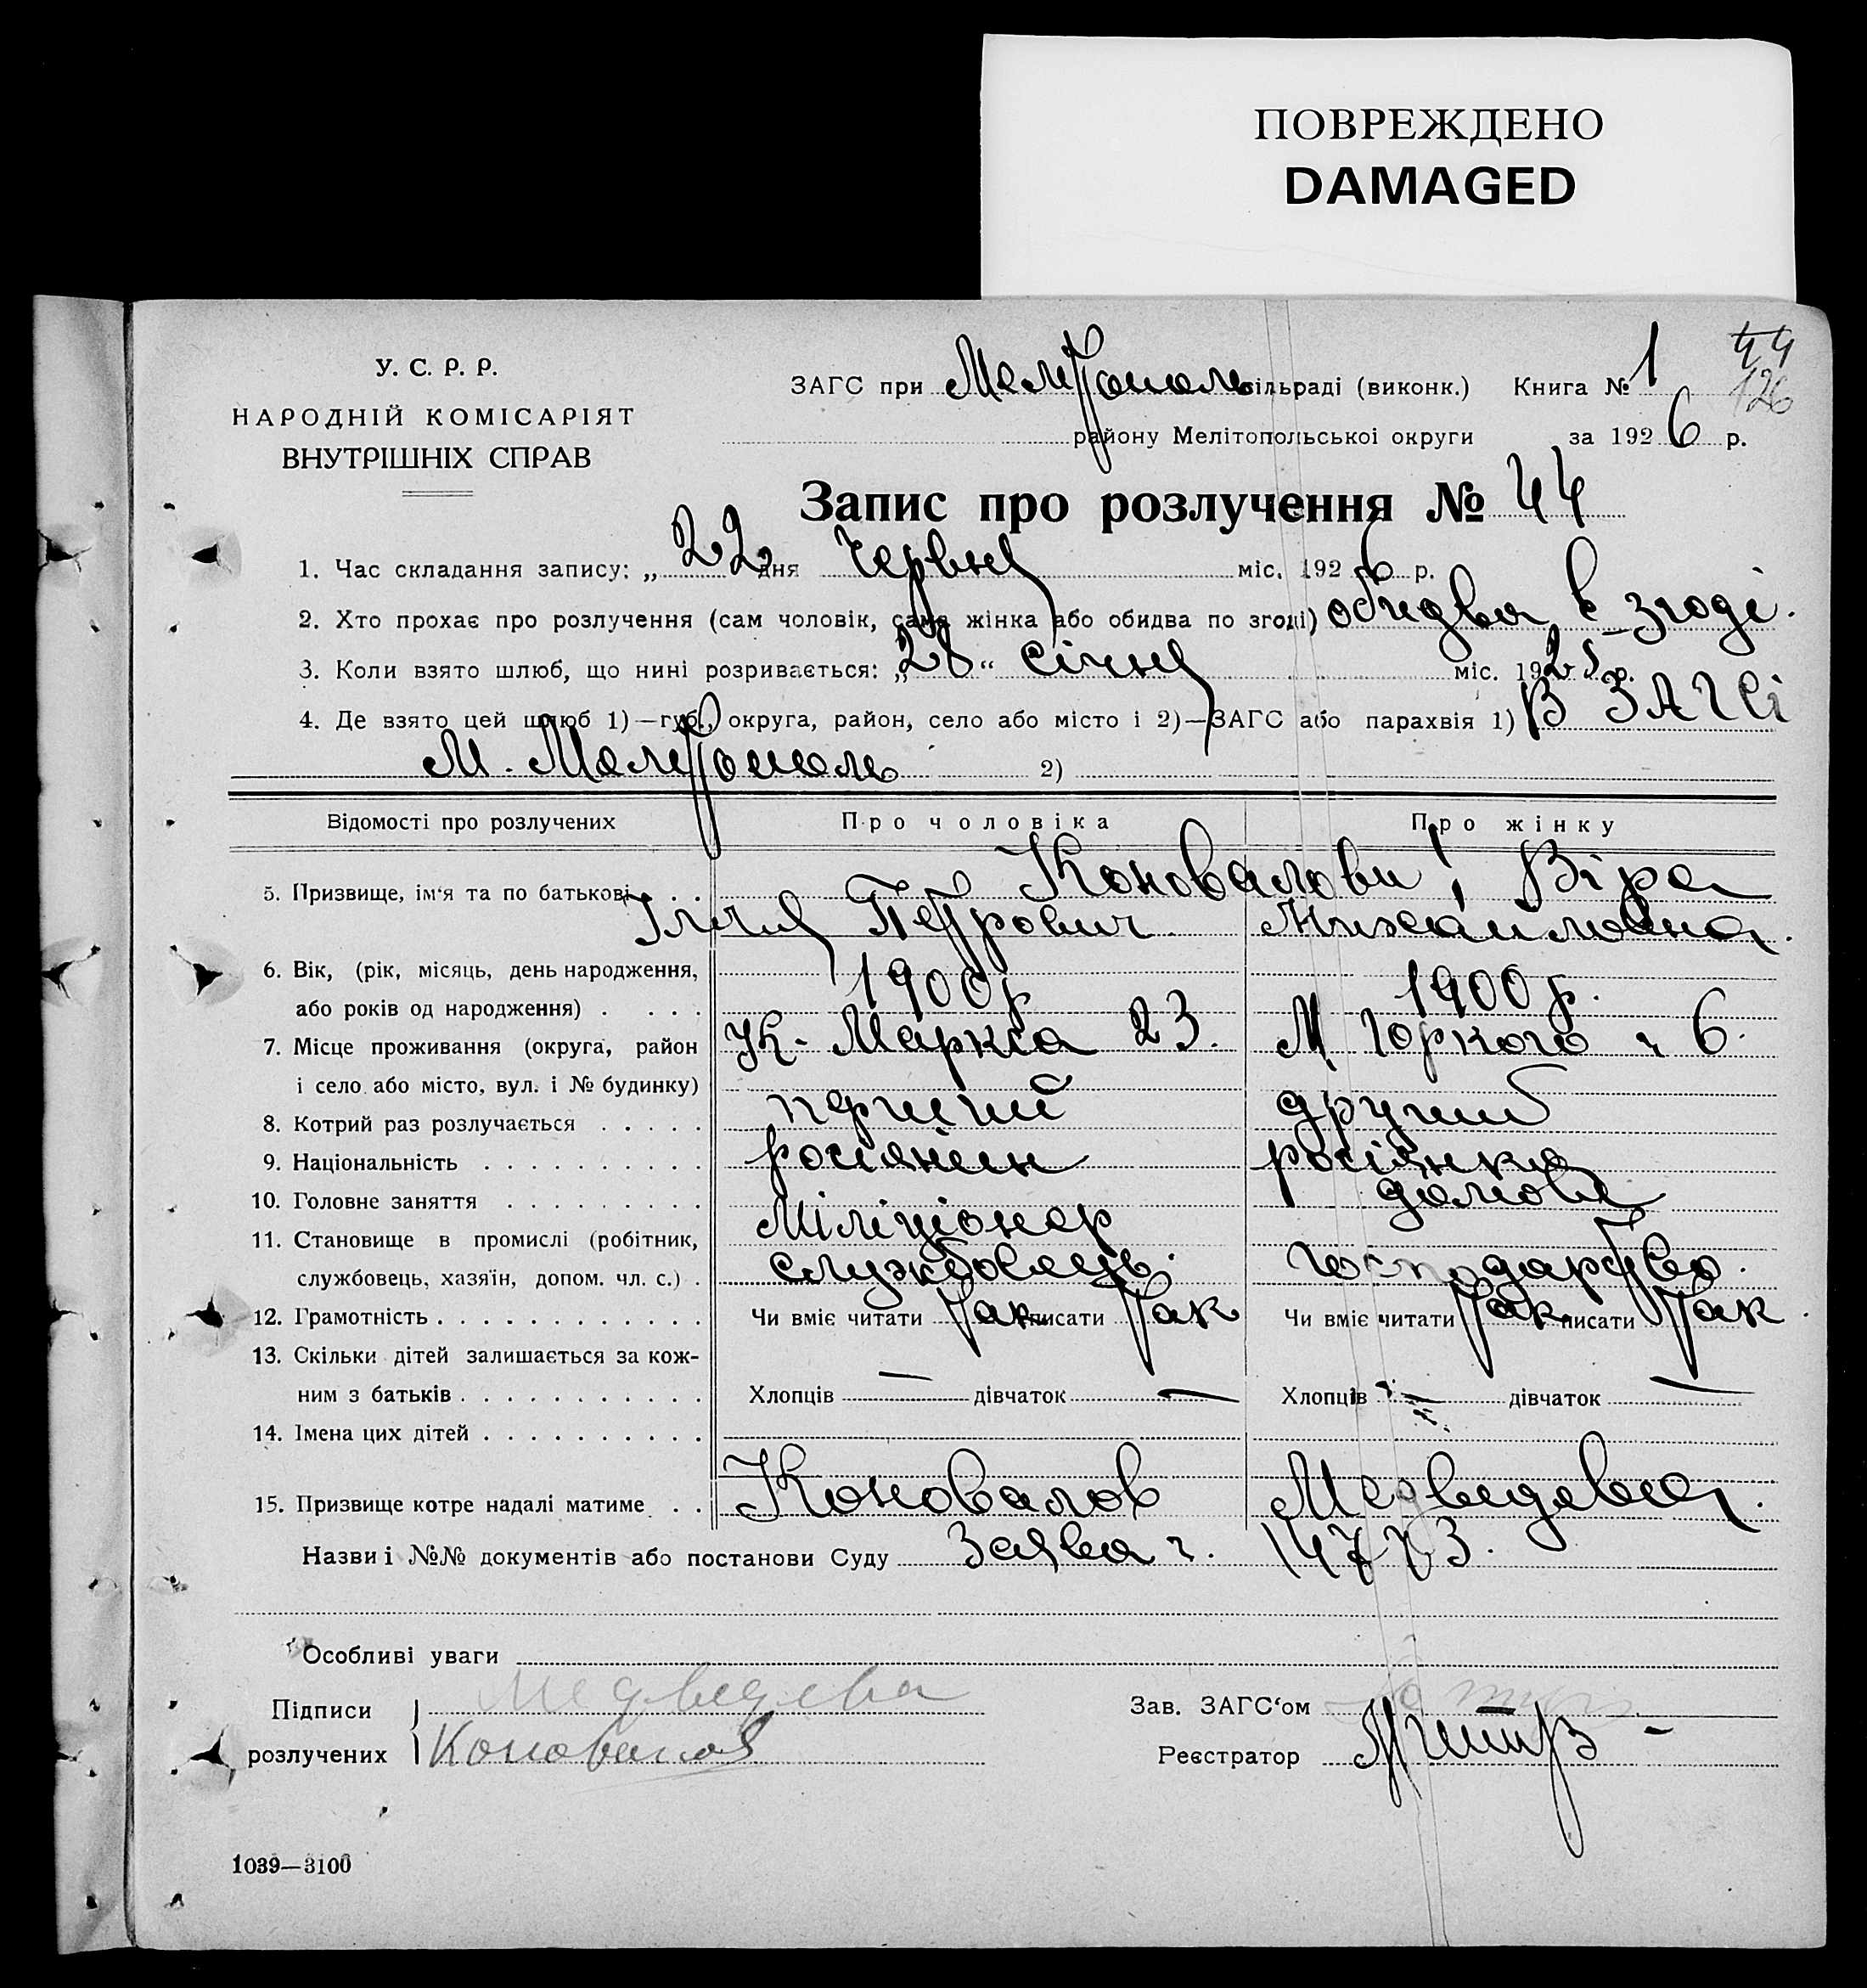 ПОВРЕЖДЕНО
DAMAGED
У. С. Р. Р.
НАРОДНІЙ КОМІСАРІЯТ
ВНУТРІШНІХ СПРАВ
ЗАГС при Мелітополь сільраді (виконк.) Книга № 1 44
126
району Мелітопольської округи за 1926 р.
Запис про розлучення № 44
1. Час складання запису: „22 дня Червня міс. 1926 р.
2. Хто прохає про розлучення (сам чоловік, сама жінка або обидва по згоді) обидва в згоді.
3. Коли взято шлюб, що нині розривається: „28“ січня міс. 1925 р.
4. Де взято цей шлюб 1)—губ., округа, район, село або місто і 2)—ЗАГС або парахвія 1) В ЗАГСі
М. Мелітополь 2)
Відомості про розлучених Про чоловіка Про жінку
Коновалови; Віра
5. Призвище, ім‘я та по батькові Ілія Петрович Михайловна.
6. Вік, (рік, місяць, день народження,
або років од народження) . . . . 1900 р 1900 р.
7. Місце проживання (округа, район К. Маркса 23. М. Горкого 6.
і село або місто, вул. і № будинку)
8. Котрий раз розлучається . . . . . перший другий
9. Національність . . . . . . . . . . росіянин росіянка
10. Головне заняття . . . . . . . . . Міліціонер домове
11. Становище в промислі (робітник,
службовець, хазяїн, допом. чл. с.) . службовець. господарство.
12. Грамотність . . . . . . . . . . . . Чи вміє читати Так писати Так Чи вміє читати Так писати Так
13. Скільки дітей залишається за кож-
ним з батьків . . . . . . . . . . . Хлопців — дівчаток — Хлопців — дівчаток —
14. Імена цих дітей . . . . . . . . . .
15. Призвище котре надалі матиме . . Коновалов Медведева.
Назви і №№ документів або постанови Суду Заява ч. 14773.
Особливі уваги
Підписи Медведева Зав. ЗАГС‘ом
розлучених Коновалов Реєстратор
1039—3100